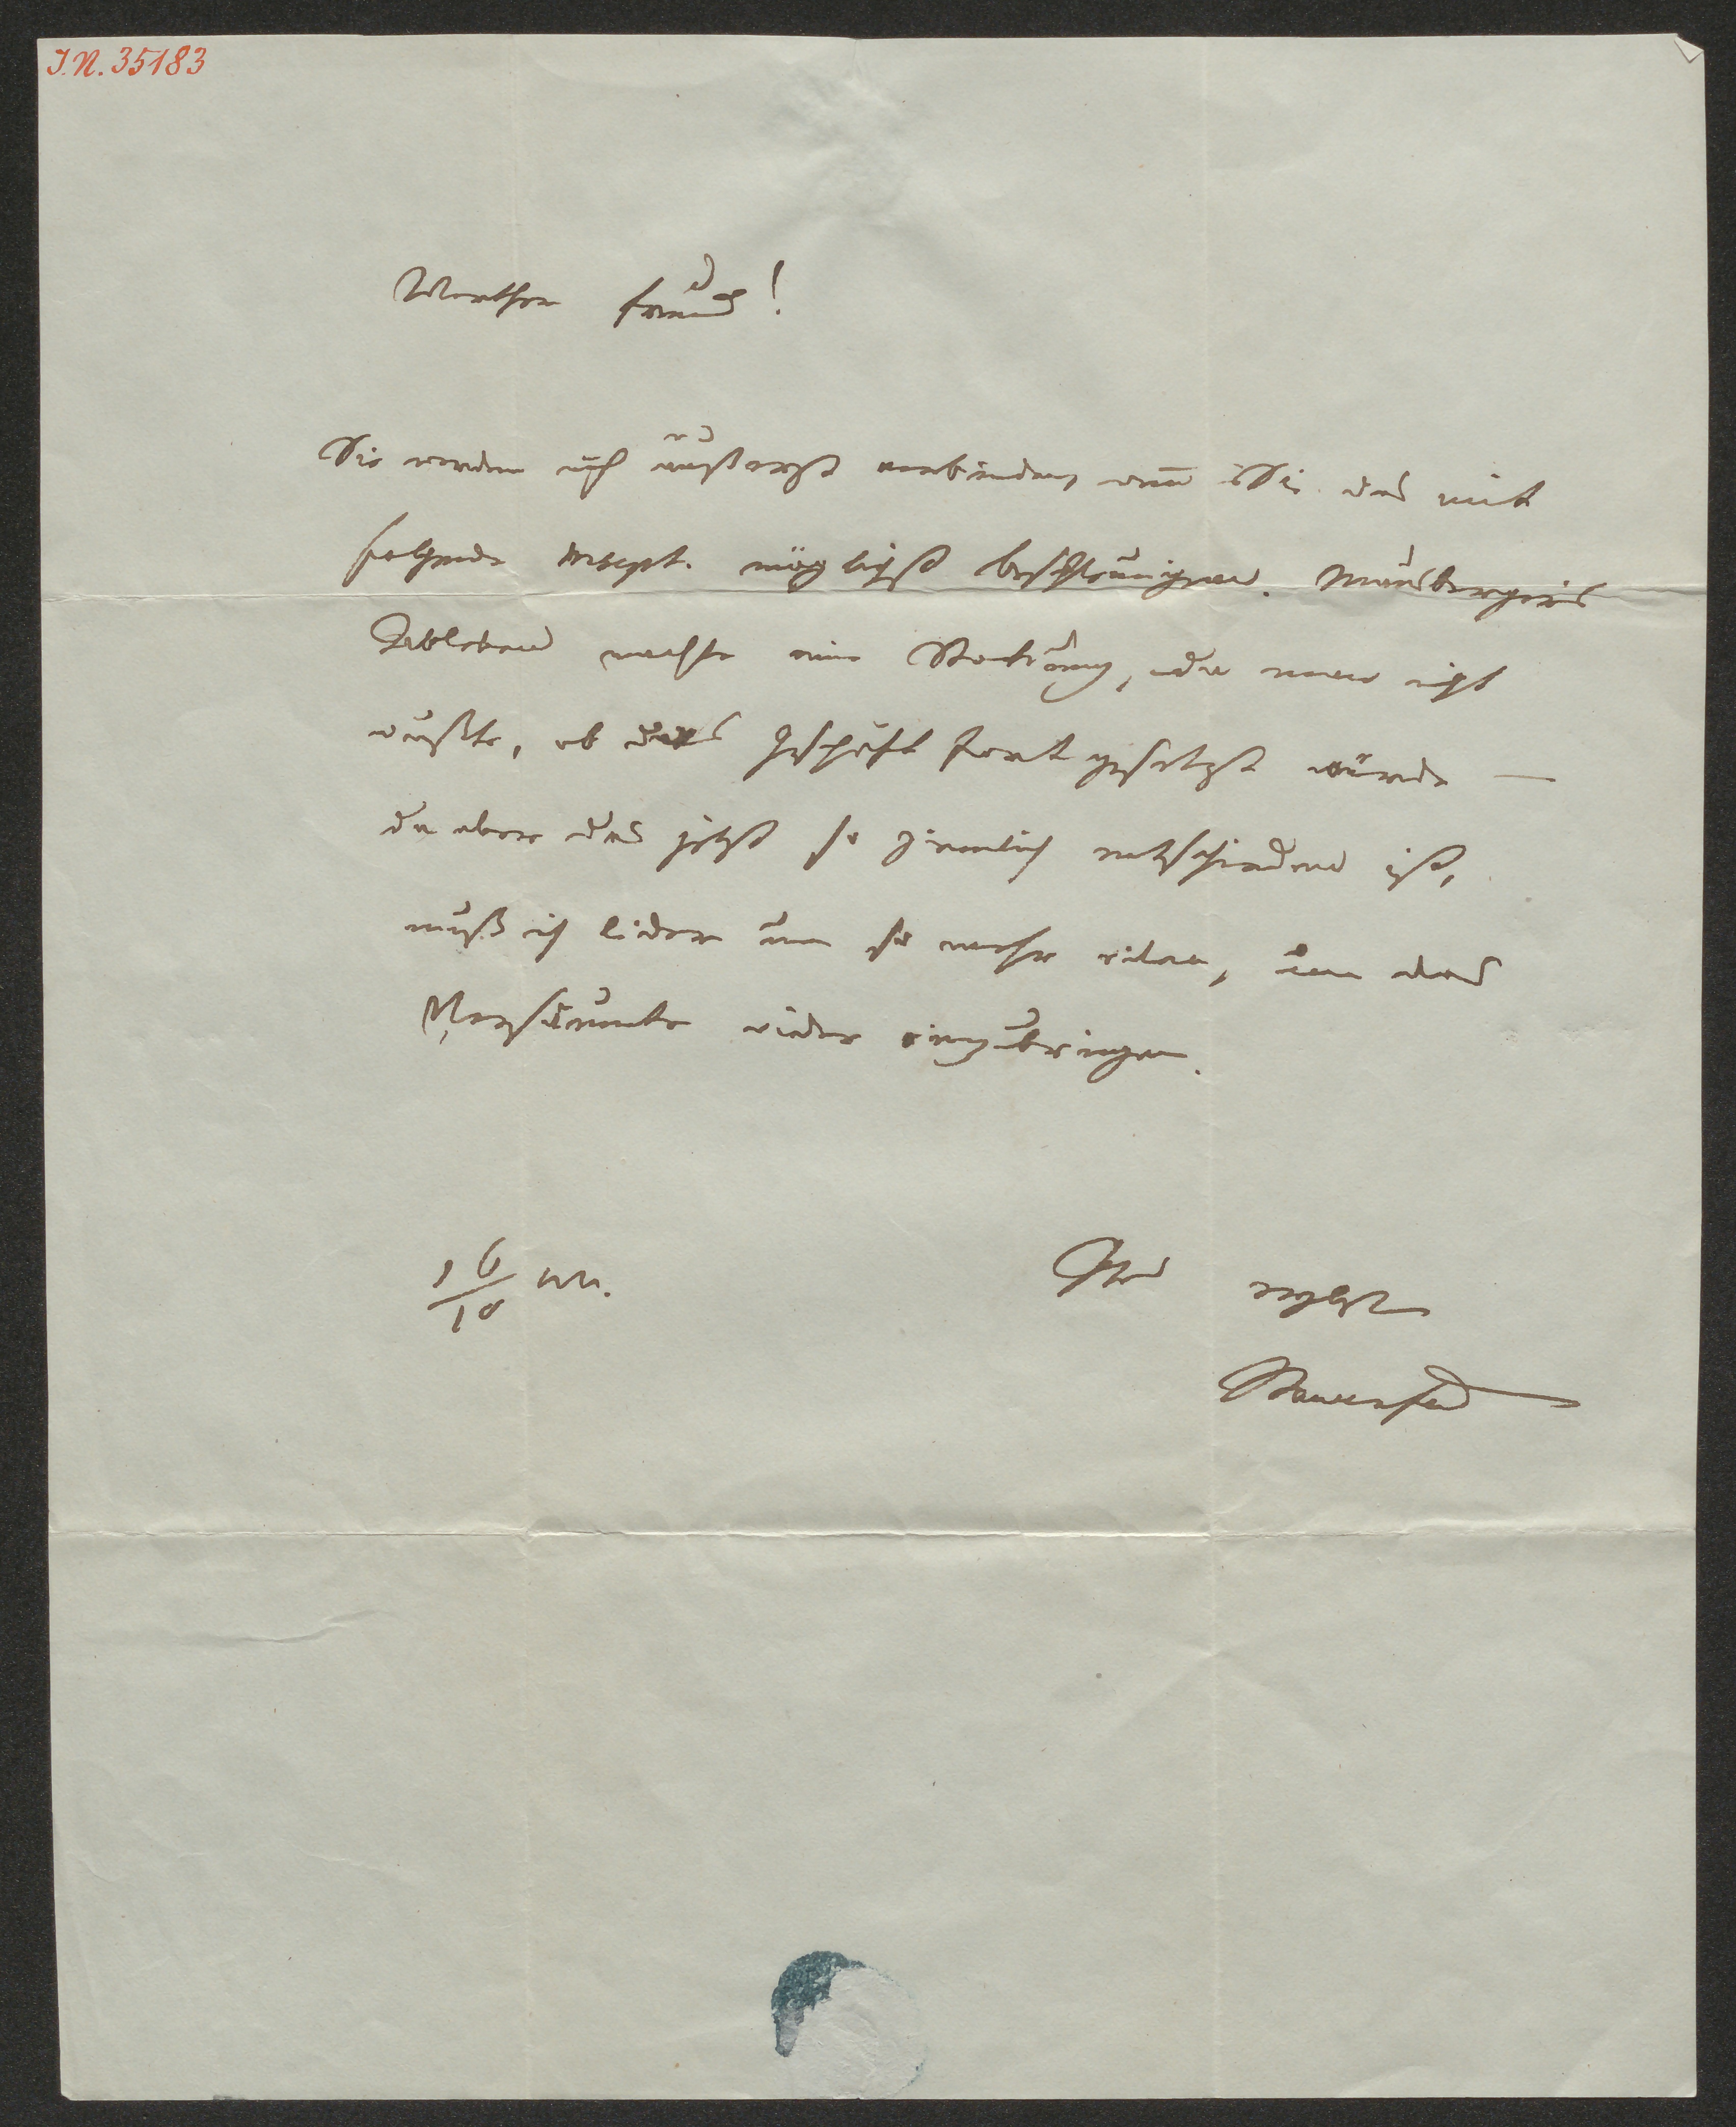 I.N. 35183
Werther Freund!
Sie werden mich äußerst verbinden, wenn Sie das mit
folgende Mscpt. möglichst beschleunigen. Mausbergers
Ableben machte eine Stockung, da man nicht
wußte, ob das Geschäft fortgesetzt würde —
da aber das jetzt so ziemlich entschieden ist,
muß ich leider um so mehr eilen, um das
Versäumte wieder einzubringen.
16/10
Ihr
Bauernfeld